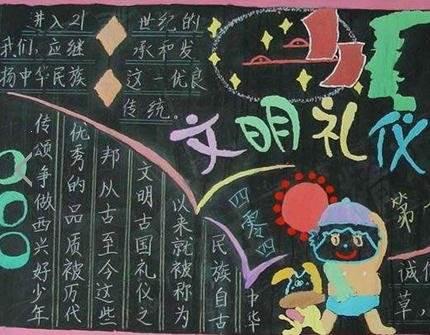 进入21 世纪的
我们,应继 承和发
扬中华民族 这一优良
传统。
文明礼仪
四零四
中华
民族自古
以来就被称为
文明古国礼仪之
邦从古至今这些
优秀的品质被历代
传颂争做西兴好少年
第
诚
草,